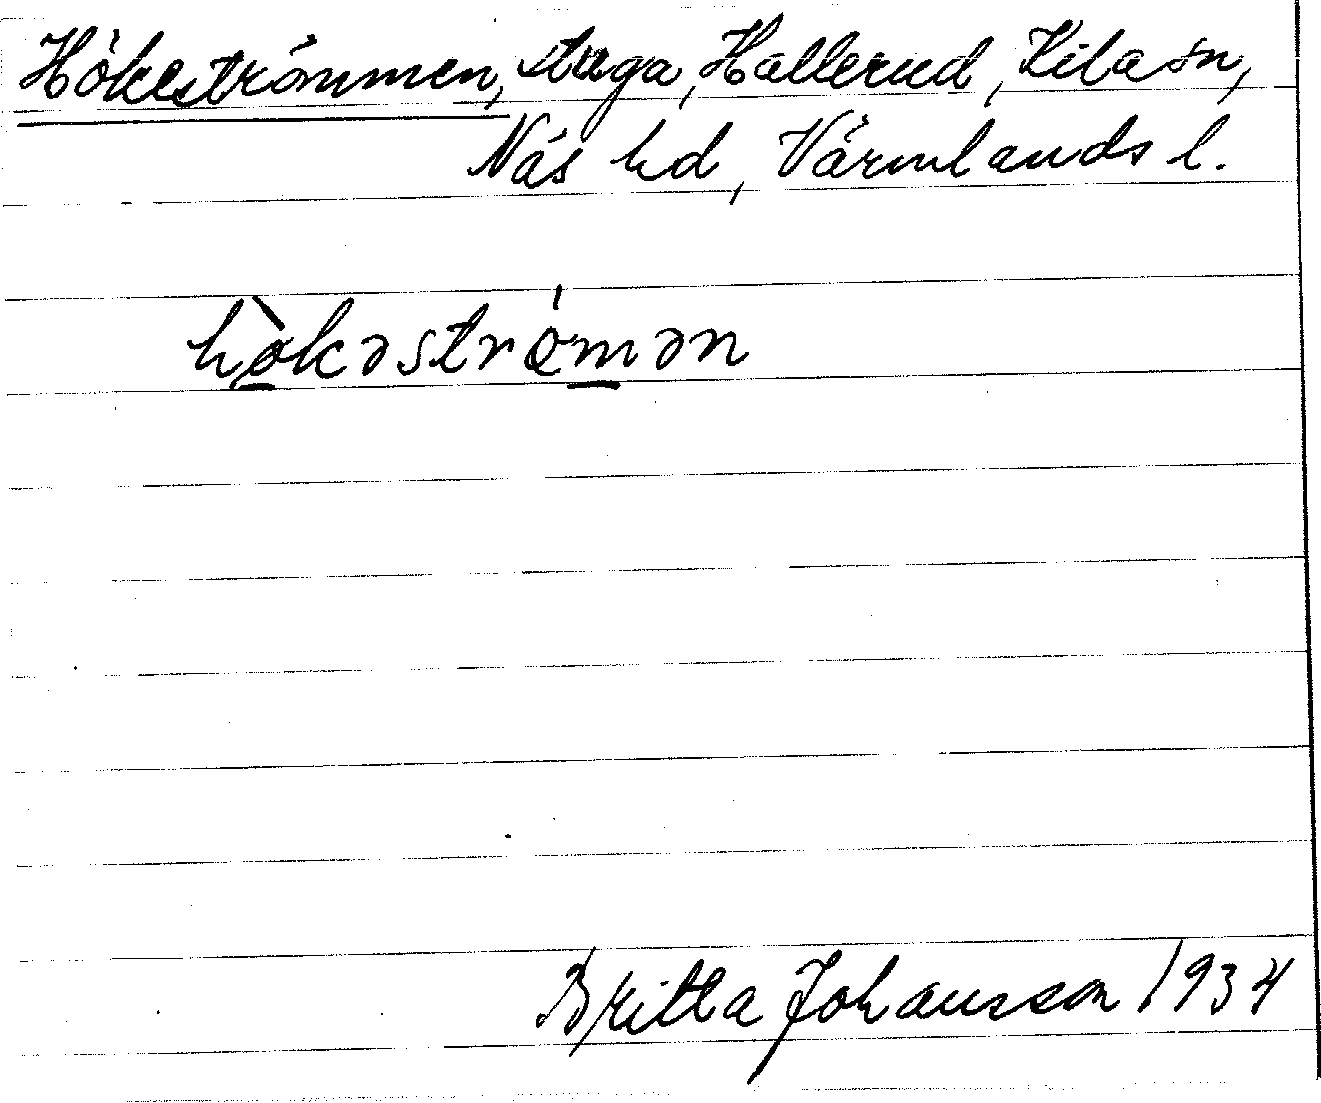 Hökeströmmen, stuga, Hallerud, Kila sn,
Näs hd, Värmlands l.
hø̀kəstrǿmən
Britta Johansson 1934